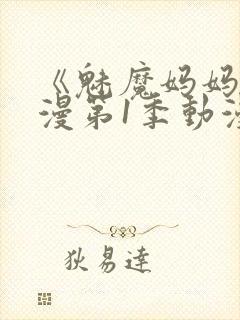 《魅魔妈妈
漫第1季動漫
狄易達